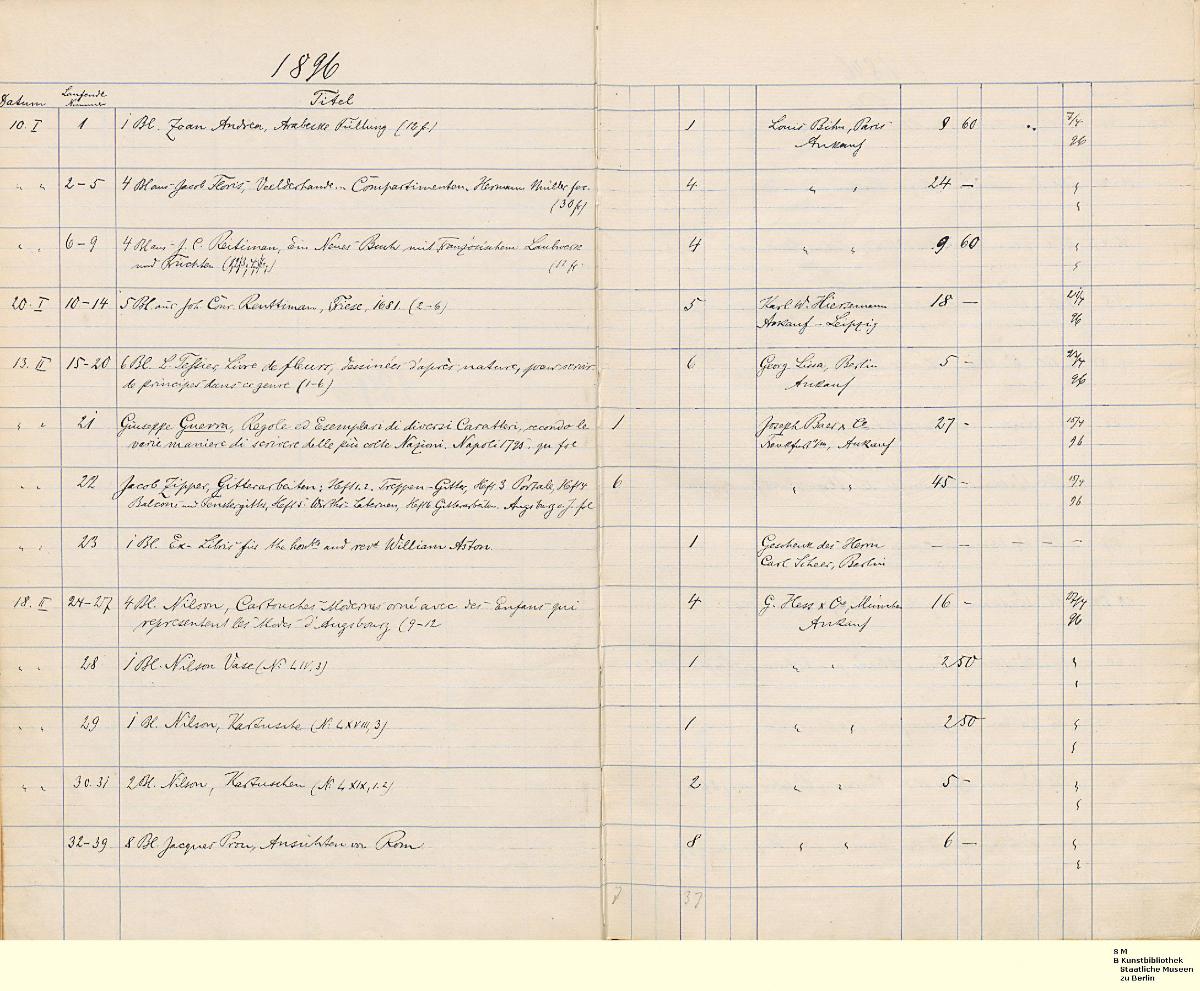 1896
Datum Laufende Nummer Titel
10. I 1 1 Bl. Zoan Andrea, Arabeske Füllung (12 f.) 1 Louis Bihn, Paris 9 60 7/4
Ankauf 96
" " 2-5 4 Bl aus Jacob Floris, Veelderhande Compartimenten Hermann Müller fec. 4 " " 24 —
(30 fr)
" " 6-9 4 Bl aus J. C. Reitiman, Ein Neues Buch mit Französischem Laubwerk 4 " " 9 60
und Früchten (12 fr.
20. I 10-14 5 Bl. aus Joh Conr. Reuttimann, Friese, 1681. (2-6) 5 Karl W. Hiersemann 18 —
Ankauf - Leipzig 96
13. II 15-20 6 Bl. L. Tessier, Livre de fleurs, dessinées d'après nature, pour servir 6 Georg Lissa, Berlin 5 -
de principes dans ce genre (1-6) Ankauf 96
" " 21 Giuseppe Guerra, Regole ed Esemplari di diversi Caratteri, secondo le 1 Joseph Baer & Co 27 - 15/4
varie maniere di scrivere delle più colte Nazioni. Napoli qu fol Frankfurt a/m, Ankauf 96
" " 22 Jacob Zipper, Gitterarbeiten; Heft 1.2. Treppen-Gitter, Heft 3 Portale, Heft 4 6 " " 45 - 15/4
Balcons und Fenstergitter, Heft 5 Wirths-Laternen, Heft 6 Gitterarbeiten. Augsburg o. J. fol 96
" " 23 1 Bl. Ex-Libris für the honble and revd William Aston. 1 Geschenk des Herrn — — — — —
Carl Scheer, Berlin
18. II 24-27 4 Bl. Nilson, Cartouches Modernes orné avec des Enfans qui 4 G. Hess & Co, München 16 -
representent les Modes d'Augsbourg (9-12 Ankauf 96
" " 28 1 Bl. Nilson Vase (No LIV, 3) 1 " " 2 50
" " 29 1 Bl. Nilson, Kartusche (No LXVIII, 3) 1 " " 2 50
" " 30.31 2 Bl. Nilson, Kartuschen (No LXIX, 1.2) 2 " " 5 -
32-39 8 Bl. Jacques Prou, Ansichten von Rom 8 " " 6 —
7 37
S M
B Kunstbibliothek
Staatliche Museen
zu Berlin